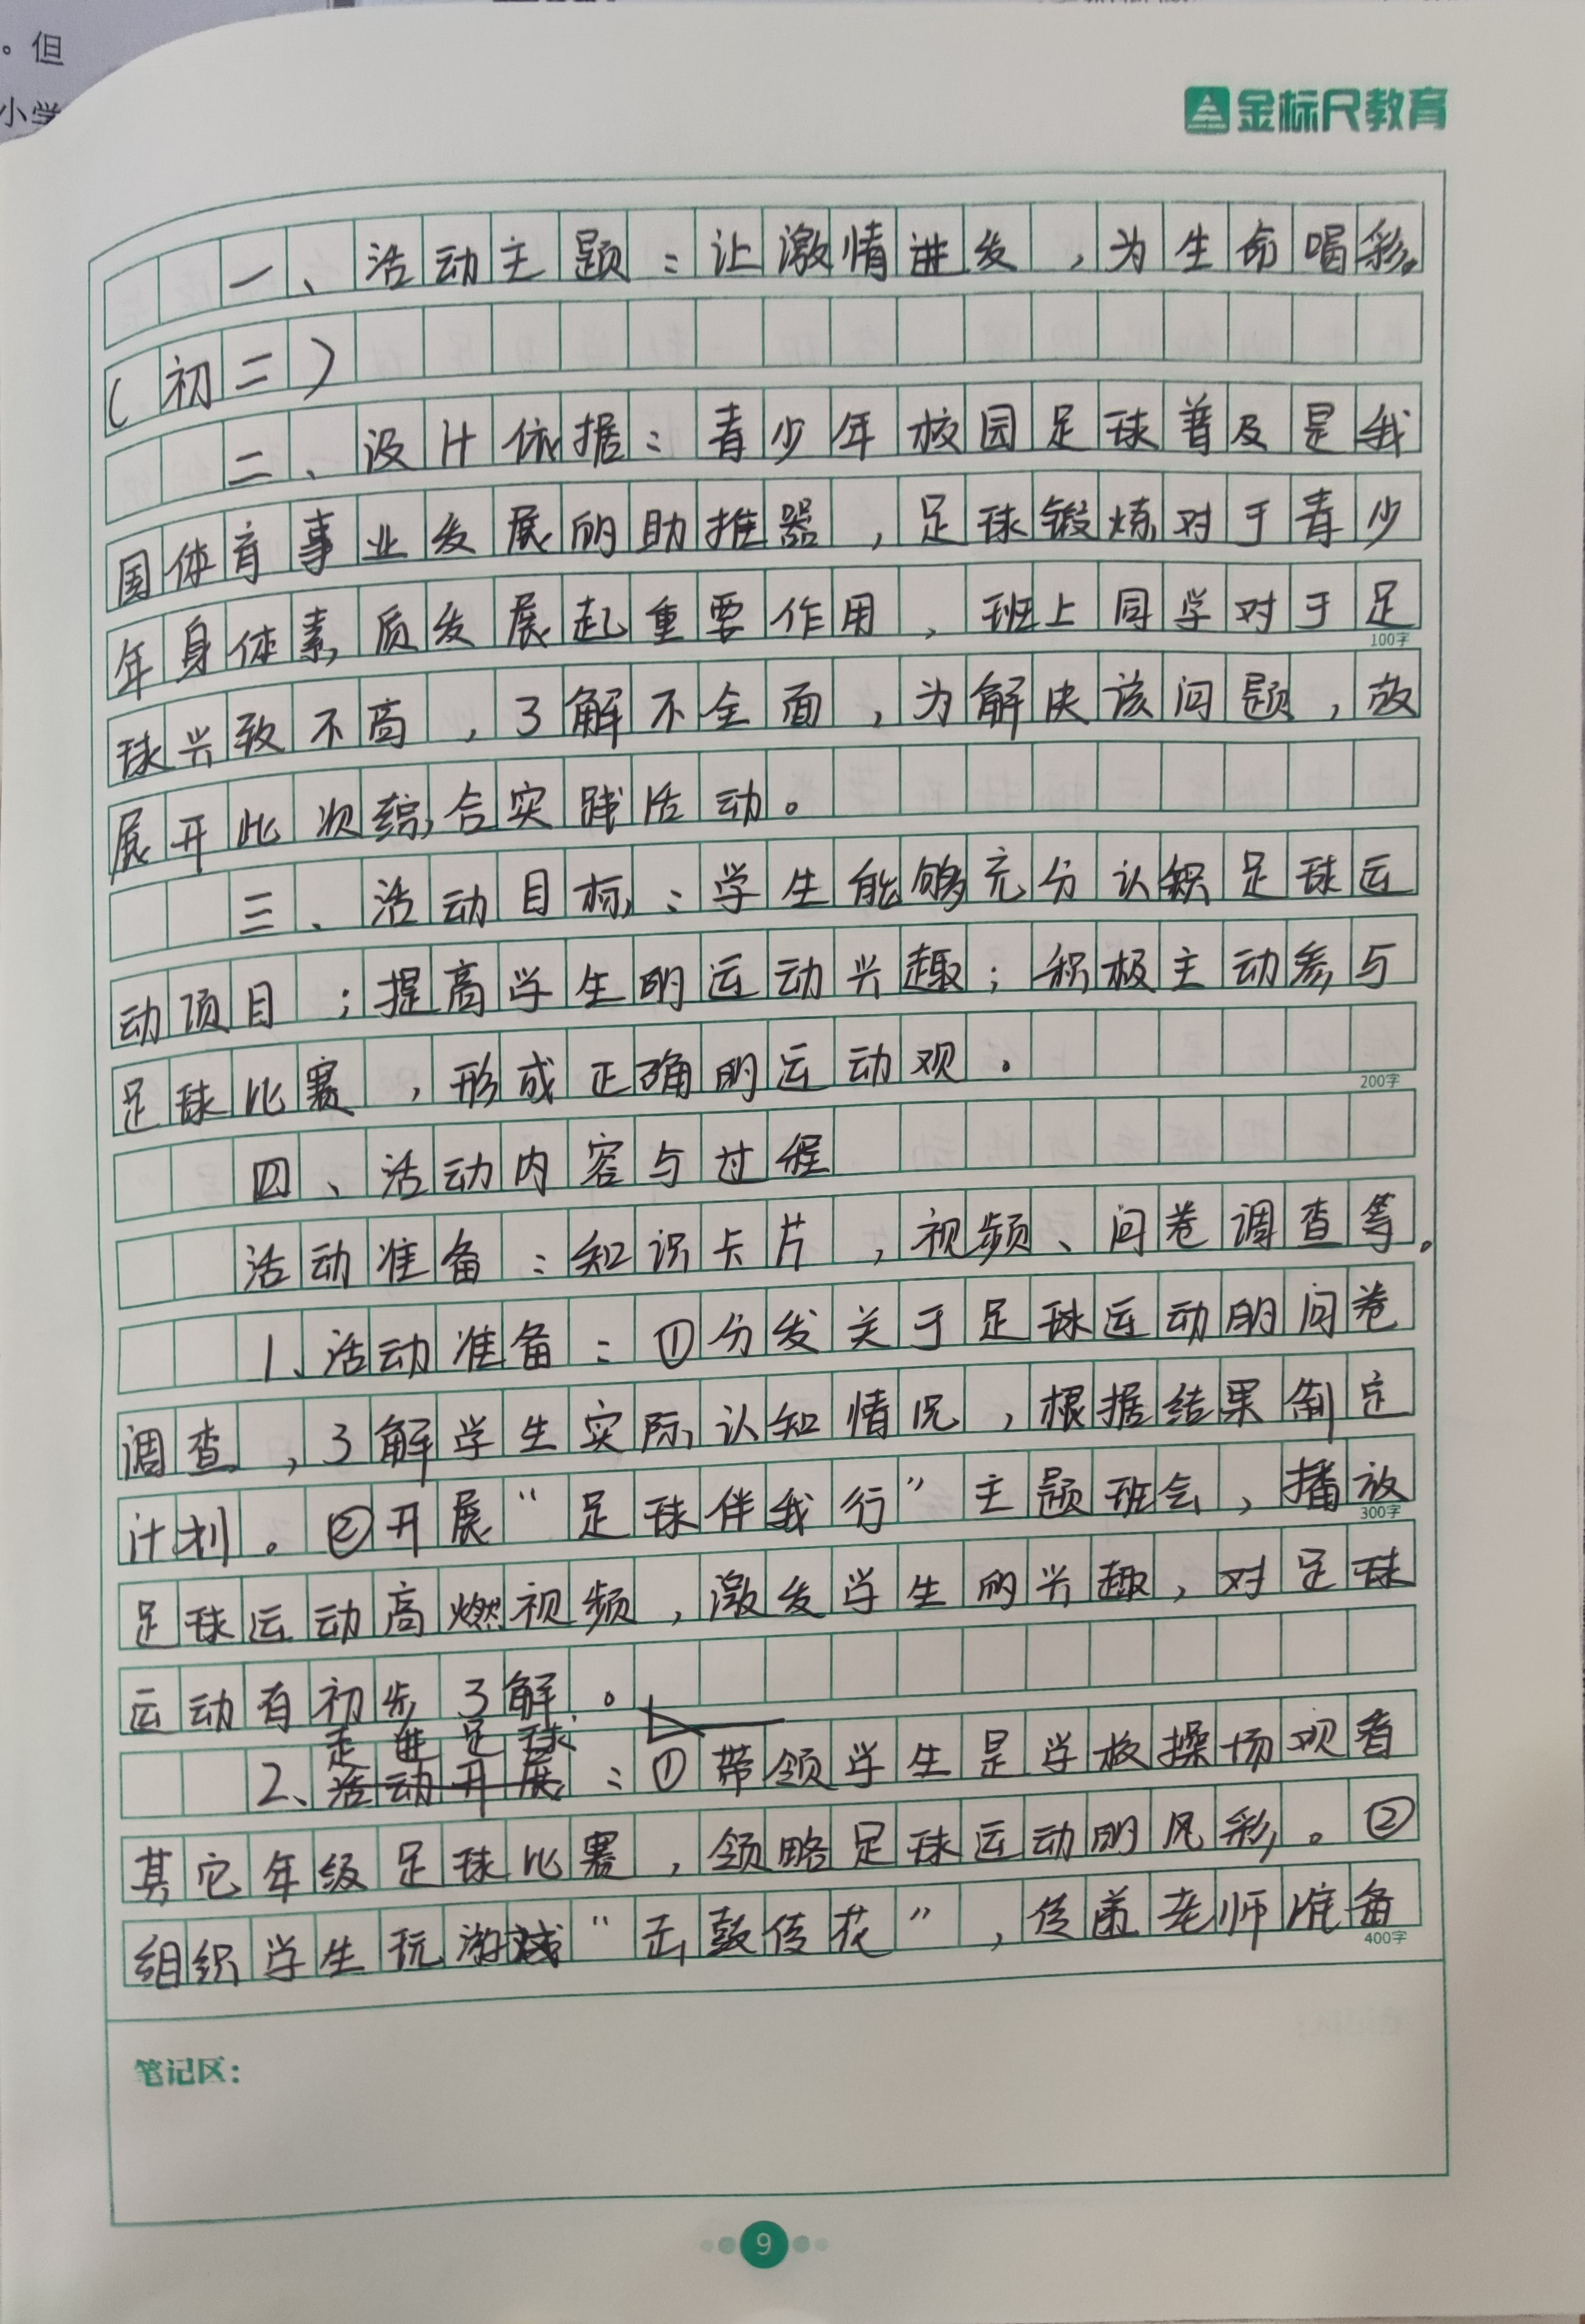 。但
小学
金标尺教育
一、活动主题：让激情迸发，为生命喝彩。
（初二）
二、设计依据：青少年校园足球普及是我
国体育事业发展的助推器，足球锻炼对于青少
年身体素质发展起重要作用，班上同学对于足
100字
球兴致不高，了解不全面，为解决该问题，故
展开此次综合实践活动。
三、活动目标：学生能够充分认识足球运
动项目；提高学生的运动兴趣；积极主动参与
足球比赛，形成正确的运动观。
200字
四、活动内容与过程
活动准备：知识卡片，视频、问卷调查等。
1、活动准备：①分发关于足球运动的问卷
调查，了解学生实际认知情况，根据结果制定
计划。②开展“足球伴我行”主题班会，播放
300字
足球运动高燃视频，激发学生的兴趣，对足球
运动有初步了解。
走进足球
2、活动开展：①带领学生是学校操场观看
其它年级足球比赛，领略足球运动的风彩。②
组织学生玩游戏“击鼓传花”，传递老师准备
400字
笔记区：
9